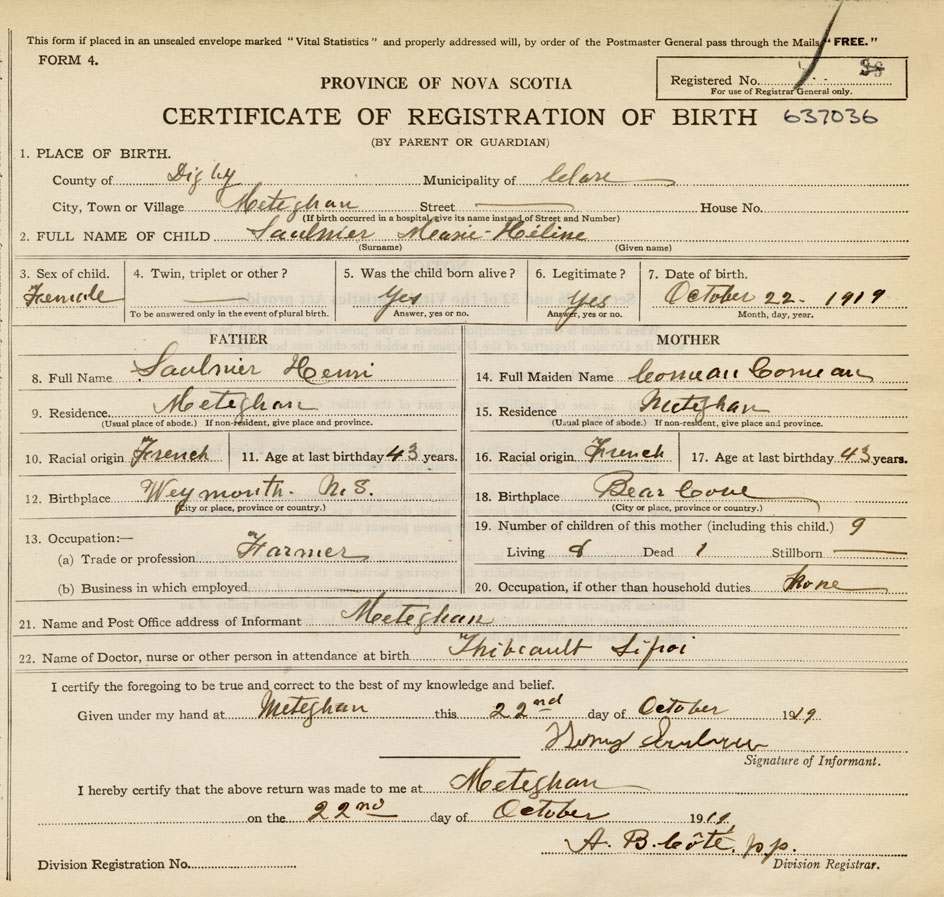 This form if placed in an unsealed envelope marked "Vital Statistics" and properly addressed will, by order of the Postmaster General pass through the Mails "FREE."
FORM 4.
Registered No.
For use of Registrar General only.
PROVINCE OF NOVA SCOTIA
CERTIFICATE OF REGISTRATION OF BIRTH 637036
(BY PARENT OR GUARDIAN)
1. PLACE OF BIRTH.
County of Digby Municipality of Clare
City, Town or Village Meteghan Street House No.
(If birth occurred in a hospital, give its name instead of Street and Number)
2. FULL NAME OF CHILD Saulnier Marie-Héline
(Surname) (Given name)
3. Sex of child. 4. Twin, triplet or other? 5. Was the child born alive? 6. Legitimate? 7. Date of birth.
Female Yes Yes October 22 - 1919
To be answered only in the event of plural birth. Answer, yes or no. Answer, yes or no. Month, day, year.
FATHER
8. Full Name Saulnier Henri
9. Residence Meteghan
(Usual place of abode.) If non-resident, give place and province.
10. Racial origin French 11. Age at last birthday 43 years.
12. Birthplace Weymouth. N.S.
(City or place, province or country.)
13. Occupation:—
(a) Trade or profession Farmer
(b) Business in which employed
MOTHER
14. Full Maiden Name Comeau Comeau
15. Residence Meteghan
(Usual place of abode.) If non-resident, give place and province.
16. Racial origin French 17. Age at last birthday 43 years.
18. Birthplace Bear Cove
(City or place, province or country.)
19. Number of children of this mother (including this child.) 9
Living 8 Dead 1 Stillborn
20. Occupation, if other than household duties None
21. Name and Post Office address of Informant Meteghan
22. Name of Doctor, nurse or other person in attendance at birth Thibeault
I certify the foregoing to be true and correct to the best of my knowledge and belief.
Given under my hand at Meteghan this 22nd day of October 1919
Signature of Informant.
I hereby certify that the above return was made to me at Meteghan
on the 22nd day of October 1919
A. B. Côté, j.p.
Division Registration No. Division Registrar.